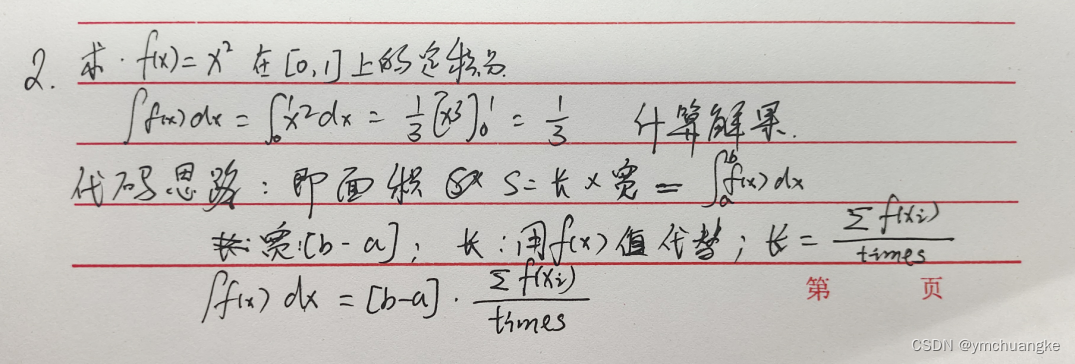 2. 求 · f(x) = x² 在 [0,1] 上的定积分.
∫f(x)dx = ∫₀¹x²dx = 1/3[x³]₀¹ = 1/3 计算解果.
代码思路: 即面积 S = 长 × 宽 = ∫ₐᵇf(x)dx
宽:[b-a]; 长:用f(x)值代替; 长 = Σf(xi)/times
∫f(x)dx = [b-a] · Σf(xi)/times
第 页
CSDN @ymchuangke